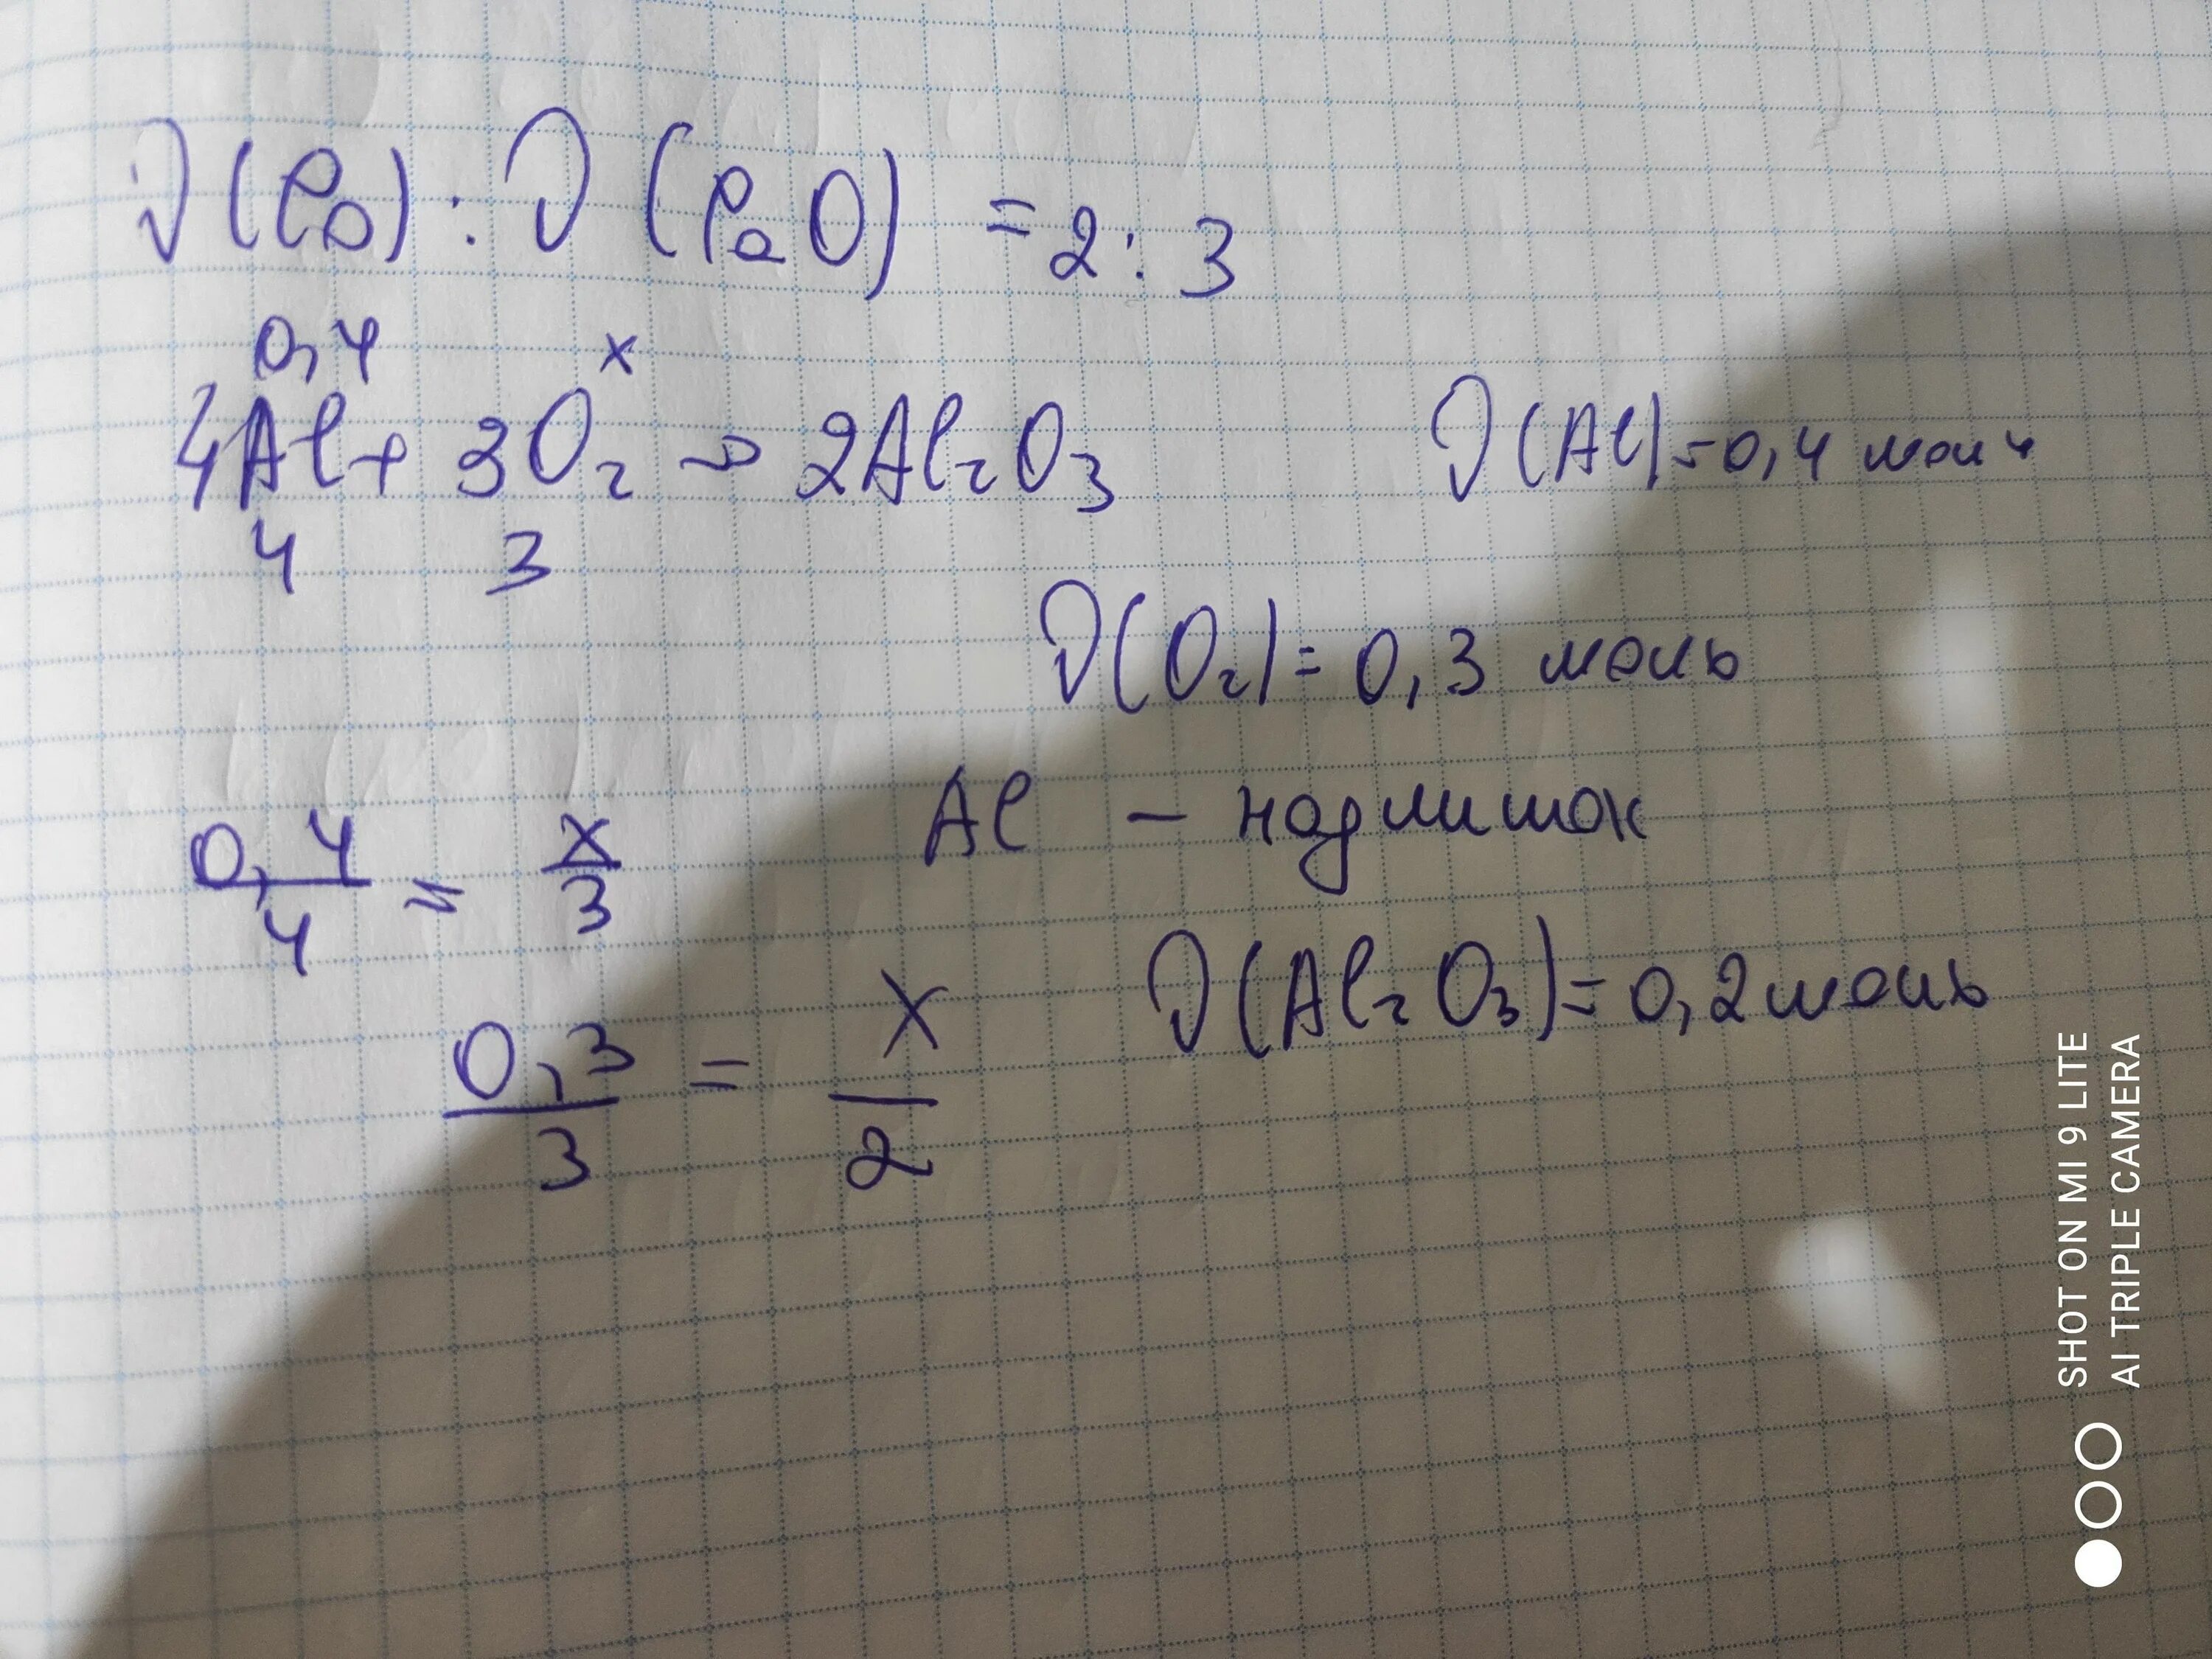 ν(P₂) : ν(P₂O) = 2 : 3
0,4 x
4Al + 3O₂ → 2Al₂O₃ ν(Al) = 0,4 моль
4 3
ν(O₂) = 0,3 моль
0,4/4 = x/3 Al – надлишок
0,3/3 = x/2 ν(Al₂O₃) = 0,2 моль
SHOT ON MI 9 LITE
AI TRIPLE CAMERA